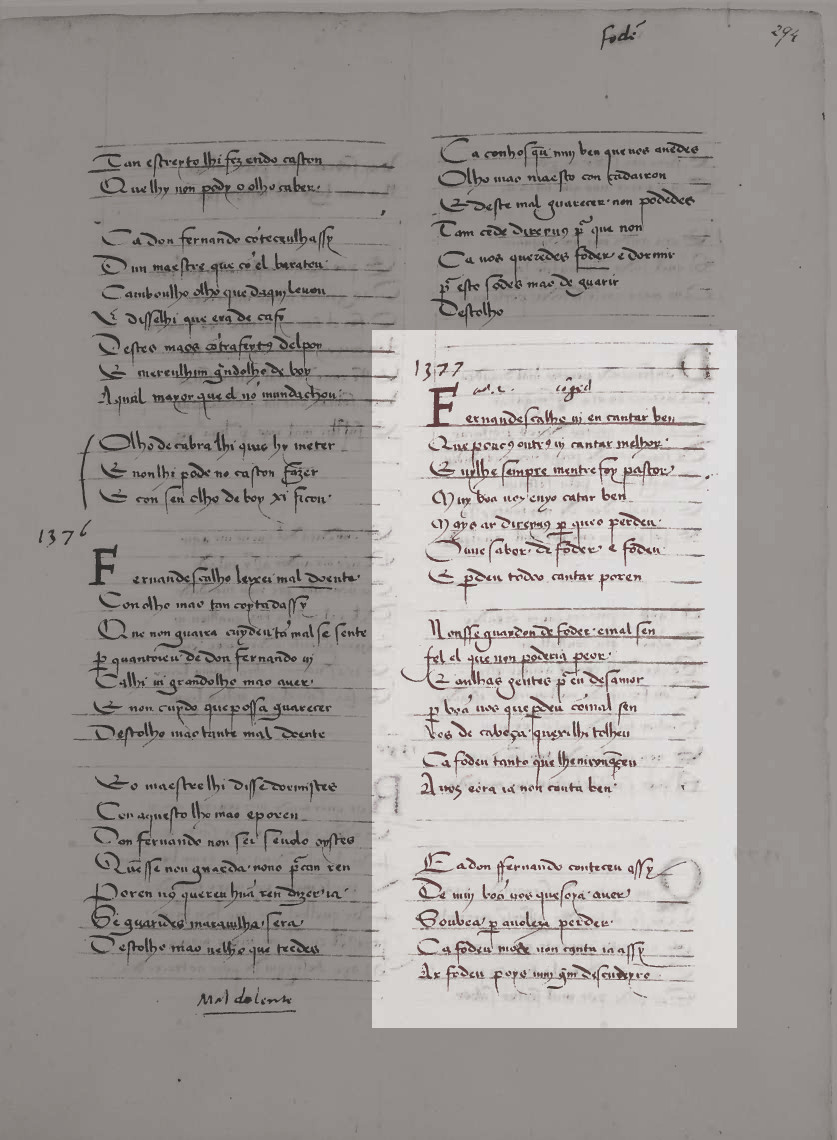 Fodī
294
Tan estreyto lhi fez endo caston
Que lhy non pody o olho caber.
Ca don fernando cōteceulhassy
Dun maestre que cō el barateu
Camboulho olho que daquy leuou
E disselhi que era de
Destes maos cōtrafeytꝯ del poy
E meteulhim grandolho de boy
Aqual mayor que el no mundachou.
Olho de cabra lhi quis hy meter
E nonlhi pode no caston fazer
E con seu olho de boy xi ficou.
1376
Fernand escalho leyxei mal doente
Con olho mao tan coytadassy
Que non guaira cuydeu tā mal se sente
ꝑ quantoieu de don fernando ui
Calhi ui grandolho mao auer.
E non cuydo que possa guarecer
Destolho mao tante mal doente
E o maestre lhi disse dormistes
Con aquesto lho mao e poren
Don fernando non sei se uolo oystes
Quēsse non guarda nono p̄can ren
Poren uō quereu hūa ren dizer ia
Se guarirdes marauilha sera
Destolho mao uelho que teedes
Mal dolente
Ca conhosq̄u muy ben que uos auedes
Olho mao maesto con cadairon
E deste mal guarecer non podedes
Tam cēde direyuꝯ p̄ que non
Ca uos queredes foder e dormir
p̄ esto sodes mao de guarir
Destolho
1377
Fernand escalho ui eu cantar ben
Que poucꝯ outrꝯ ui cantar melhor.
E uylhe sempre mentre foy pastor
Muy boa uoz e uyo catar ben
Mays ar direyuꝯ ꝑ queo perdeu.
Ouue sabor de foder e fodeu
E p̄deu todoo cantar poren
Nonsse guardou de foder e mal sen
fel el que non poderia peor.
E anlhas gentes p̄ en desamor
ꝑ boā uos que p̄deu cō mal sen
Vos de cabeça quexilhi tolheu
Ca fodeu tanto que lhenrouq̄çeu
A uoz eora ia non canta ben
E a don ffernando conteceu assy
De muy boā uos que soya auer
Soubea ꝑ auoleza perder.
Ca fodeu moçe non canta ia assy
Ar fodeu poys muy grā descudeyro